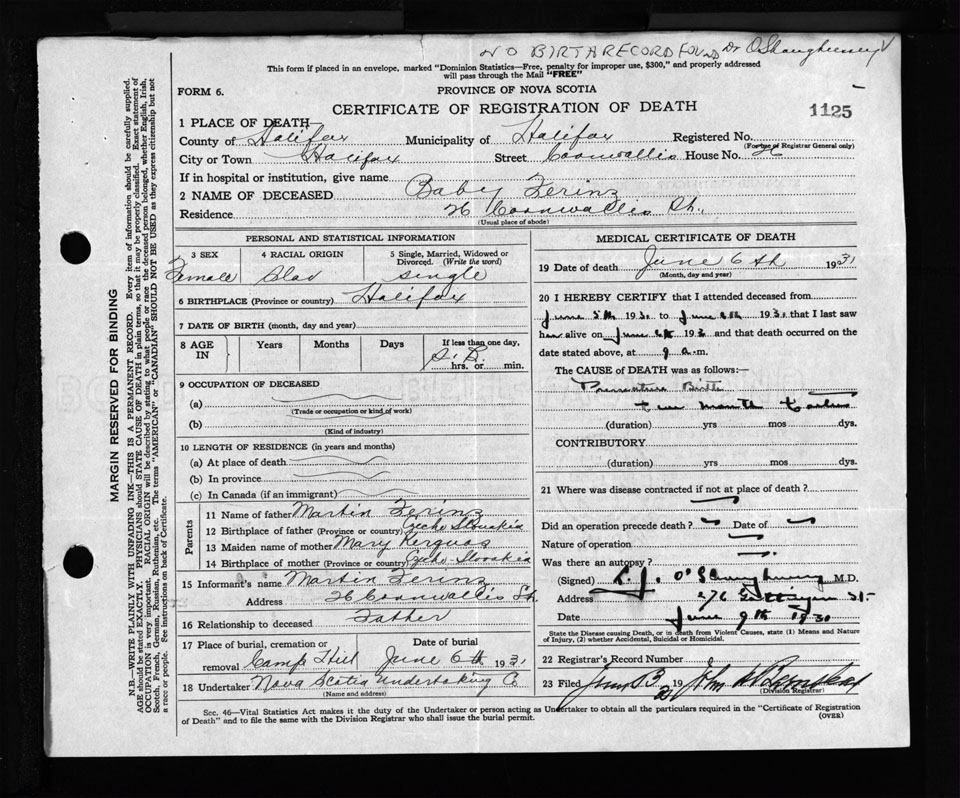 NO BIRTH RECORD FOUND Dr O'Shaughnessy
This form if placed in an envelope, marked "Dominion Statistics—Free, penalty for improper use, $300," and properly addressed
will pass through the Mail "FREE"
FORM 6. PROVINCE OF NOVA SCOTIA
CERTIFICATE OF REGISTRATION OF DEATH 1125
1 PLACE OF DEATH
County of Halifax Municipality of Halifax Registered No.
(For use of Registrar General only)
City or Town Halifax Street Cornwallis House No. 26
If in hospital or institution, give name
2 NAME OF DECEASED Baby Zerinz
Residence 26 Cornwallis St.
(Usual place of abode)
PERSONAL AND STATISTICAL INFORMATION
3 SEX 4 RACIAL ORIGIN 5 Single, Married, Widowed or Divorced. (Write the word)
Female Slav single
6 BIRTHPLACE (Province or country) Halifax
7 DATE OF BIRTH (month, day and year)
8 AGE IN Years Months Days If less than one day,
S. B.
hrs. or min.
9 OCCUPATION OF DECEASED
(a)
(Trade or occupation or kind of work)
(b)
(Kind of industry)
10 LENGTH OF RESIDENCE (in years and months)
(a) At place of death
(b) In province
(c) In Canada (if an immigrant)
Parents
11 Name of father Martin Zerinz
12 Birthplace of father (Province or country) Czecho Slovakia
13 Maiden name of mother Mary
14 Birthplace of mother (Province or country) Czecho Slovakia
15 Informant's name Martin Zerinz
Address 26 Cornwallis St.
16 Relationship to deceased Father
17 Place of burial, cremation or removal Camp Hill Date of burial June 6th 1931
18 Undertaker Nova Scotia Undertaking Co
(Name and address)
MEDICAL CERTIFICATE OF DEATH
19 Date of death June 6th 1931
(Month, day and year)
20 I HEREBY CERTIFY that I attended deceased from
June 5th 1930 to June 6th 1930 that I last saw
her alive on June 6th 193 and that death occurred on
date stated above, at 9 a.m.
The CAUSE of DEATH was as follows:—
Premature Birth
two months
(duration) yrs mos dys.
CONTRIBUTORY
(duration) yrs mos dys.
21 Where was disease contracted if not at place of death?
Did an operation precede death? Date of
Nature of operation
Was there an autopsy?
(Signed) O'Shaughnessy M.D.
Address 276 Gottingen St.
Date June 9th 1930
State the Disease causing Death, or in death from Violent Causes, state (1) Means and Nature
of Injury, (2) whether Accidental, Suicidal or Homicidal.
22 Registrar's Record Number
23 Filed 19 John
(Division Registrar)
Sec. 46—Vital Statistics Act makes it the duty of the Undertaker or person acting as Undertaker to obtain all the particulars required in the "Certificate of Registration
of Death" and to file the same with the Division Registrar who shall issue the burial permit.
(OVER)
MARGIN RESERVED FOR BINDING
N.B.—WRITE PLAINLY, WITH UNFADING INK—THIS IS A PERMANENT RECORD. Every item of information should be carefully supplied.
AGE should be stated EXACTLY. PHYSICIANS should STATE CAUSE OF DEATH in plain terms, so that it may be properly classified. Exact statement of
OCCUPATION is very important. RACIAL ORIGIN will be described by stating to what people or race the deceased person belonged, whether English, Irish,
Scotch, French, German, Russian, Ruthenian, etc. The terms "AMERICAN" or "CANADIAN" SHOULD NOT BE USED as they express citizenship but not
a race or people. See instructions on back of Certificate.